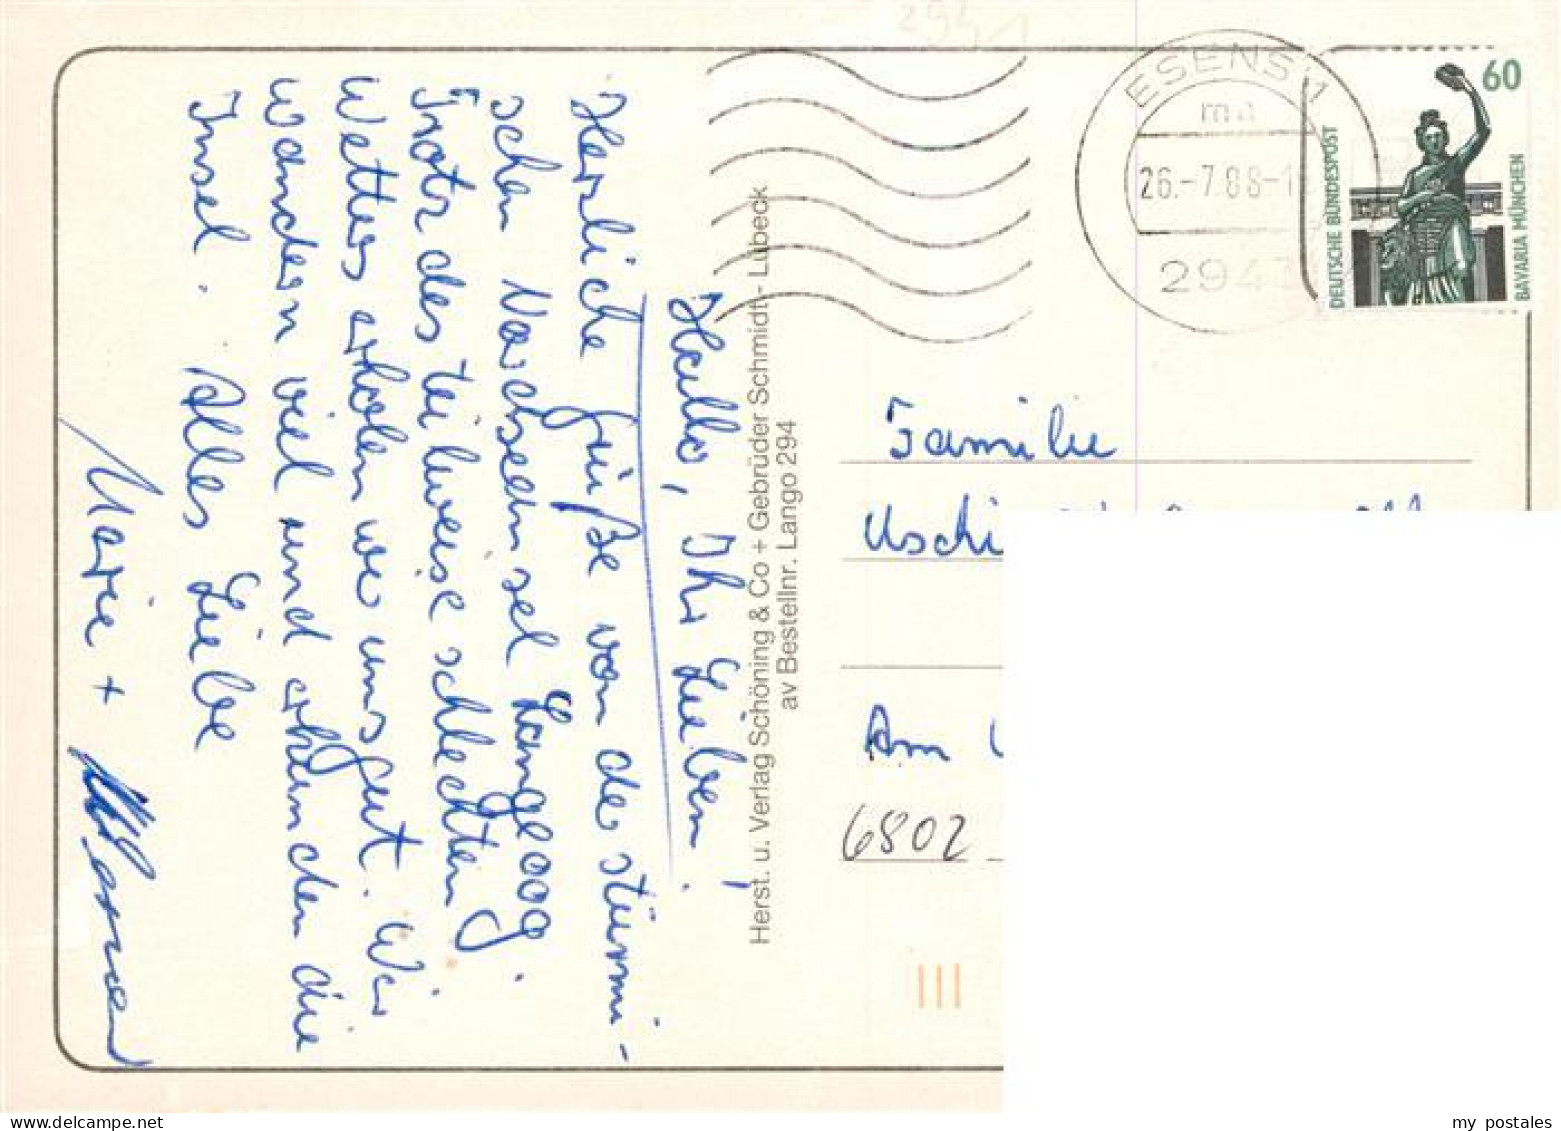 Hallo, Ihr Lieben!
Herzliche Grüße von der stürmi-
schen Nordseeinsel Langeoog.
Trotz des teilweise schlechten
Wetters erholen wir uns gut. Wir
wandern viel und erkunden die
Insel. Alles Liebe
Marie +
Herst. u. Verlag Schöning & Co + Gebrüder Schmidt - Lübeck
av Bestellnr. Lango 294
ESENS 1
ma
26.-7.88-1
294
60
DEUTSCHE BUNDESPOST
BAVARIA MÜNCHEN
Familie
Uschi
Am
6802
my postales